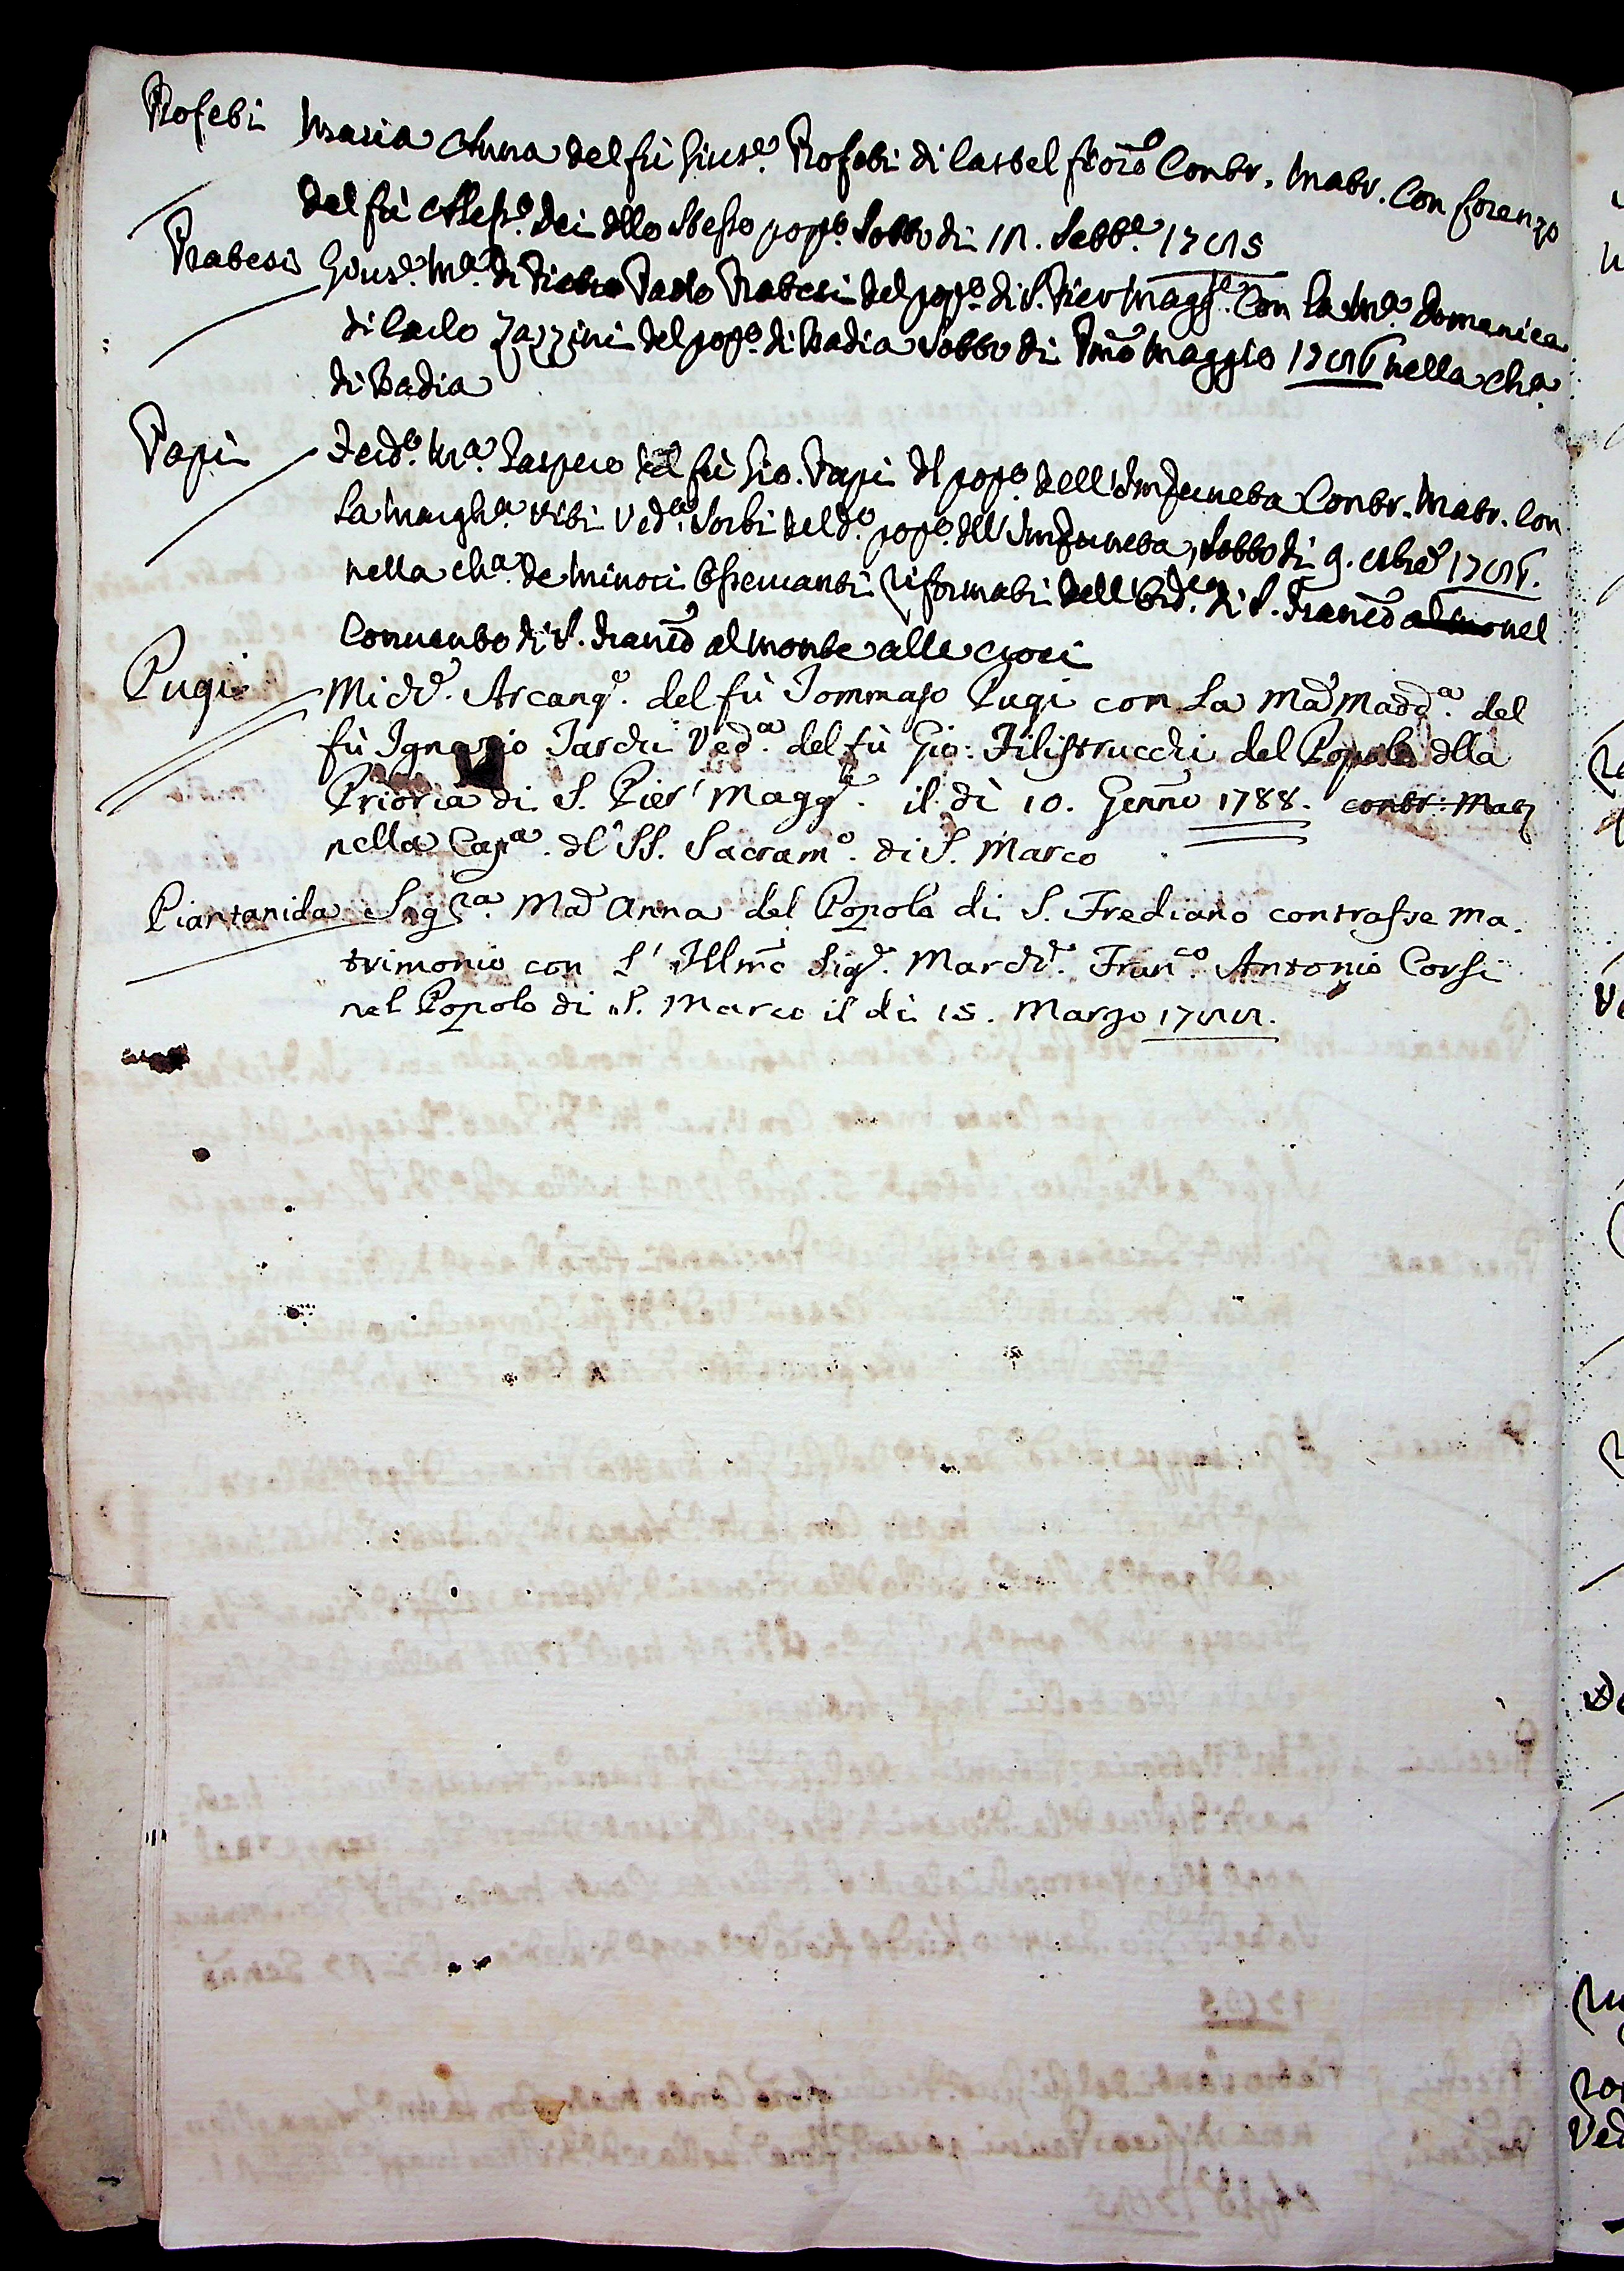 Profeti Maria Anna del fù Gius.e Profeti di Castel fior.o Contr. Matr. Con Lorenzo
del fù Aless.o Dei dllo Stesso pop.o Sotto di 18. Sett.e 1785
Pratesi Gius.e M.a di Pietro Paolo Pratesi del pop.o di S. Pier Magg.e Con la M.a Domenica
di Carlo Zazzini del pop.o di Badia Sotto di Pmo Maggio 1786 nella Ch.a
di Badia
Papi Ferd.o M.a Gaspero del fù Gio. Papi dl pop.o dell'Impruneta Contr. Matr. Con
La Margh.a Ved.a Sorbi del d.o pop.o dll'Impruneta, Sotto di 9. 1786.
nella ch.a de Minori Osservanti Riformati dell'Ord.e di S. Franc.o al mo nel
Convento di S. Franc.o al Monte alle croci
Pugi Mich.e Arcang.o del fù Tommaso Pugi con La M.a Madd.a del
fù Ignazio Tarchi Ved.a del fù Gio: Filistrucchi del Popolo dlla
Prioria di S. Pier' Magg.e il dì 10. Genno 1788. contr: Matr
nella Cap.a dl SS. Sacram.o di S. Marco
Piantanida Sig.ra M.a Anna del Popolo di S. Frediano contrasse Ma.
trimonio con L'Illmo Sig.e March.e Fran.co Antonio Corsi
nel Popolo di S. Marco il dì 15. Marzo 1788.